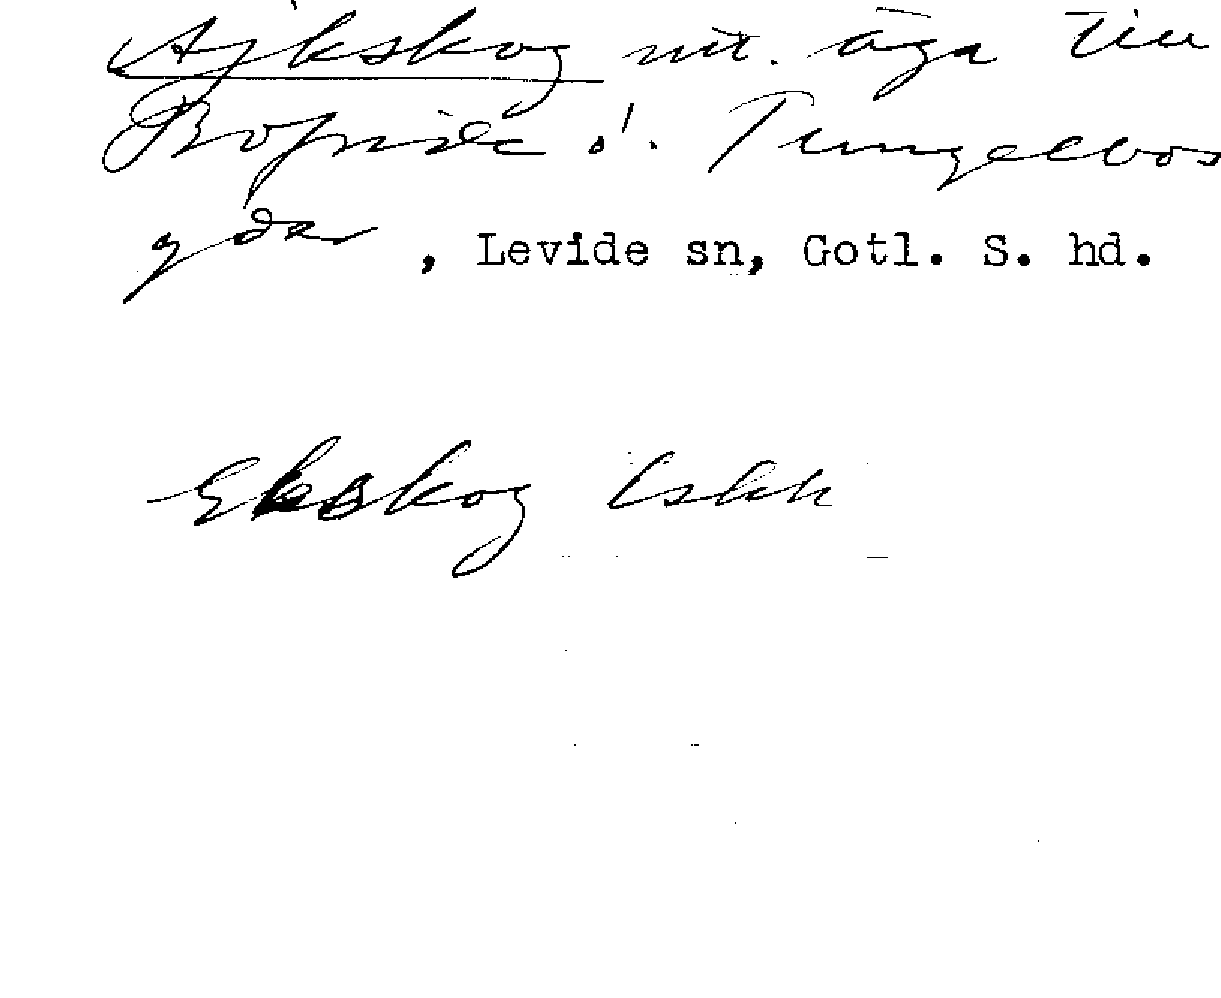 Ajkskog nu. äga till
Bofride o. Tungelbos
gdar, Levide sn, Gotl. S. hd.
Ekskog